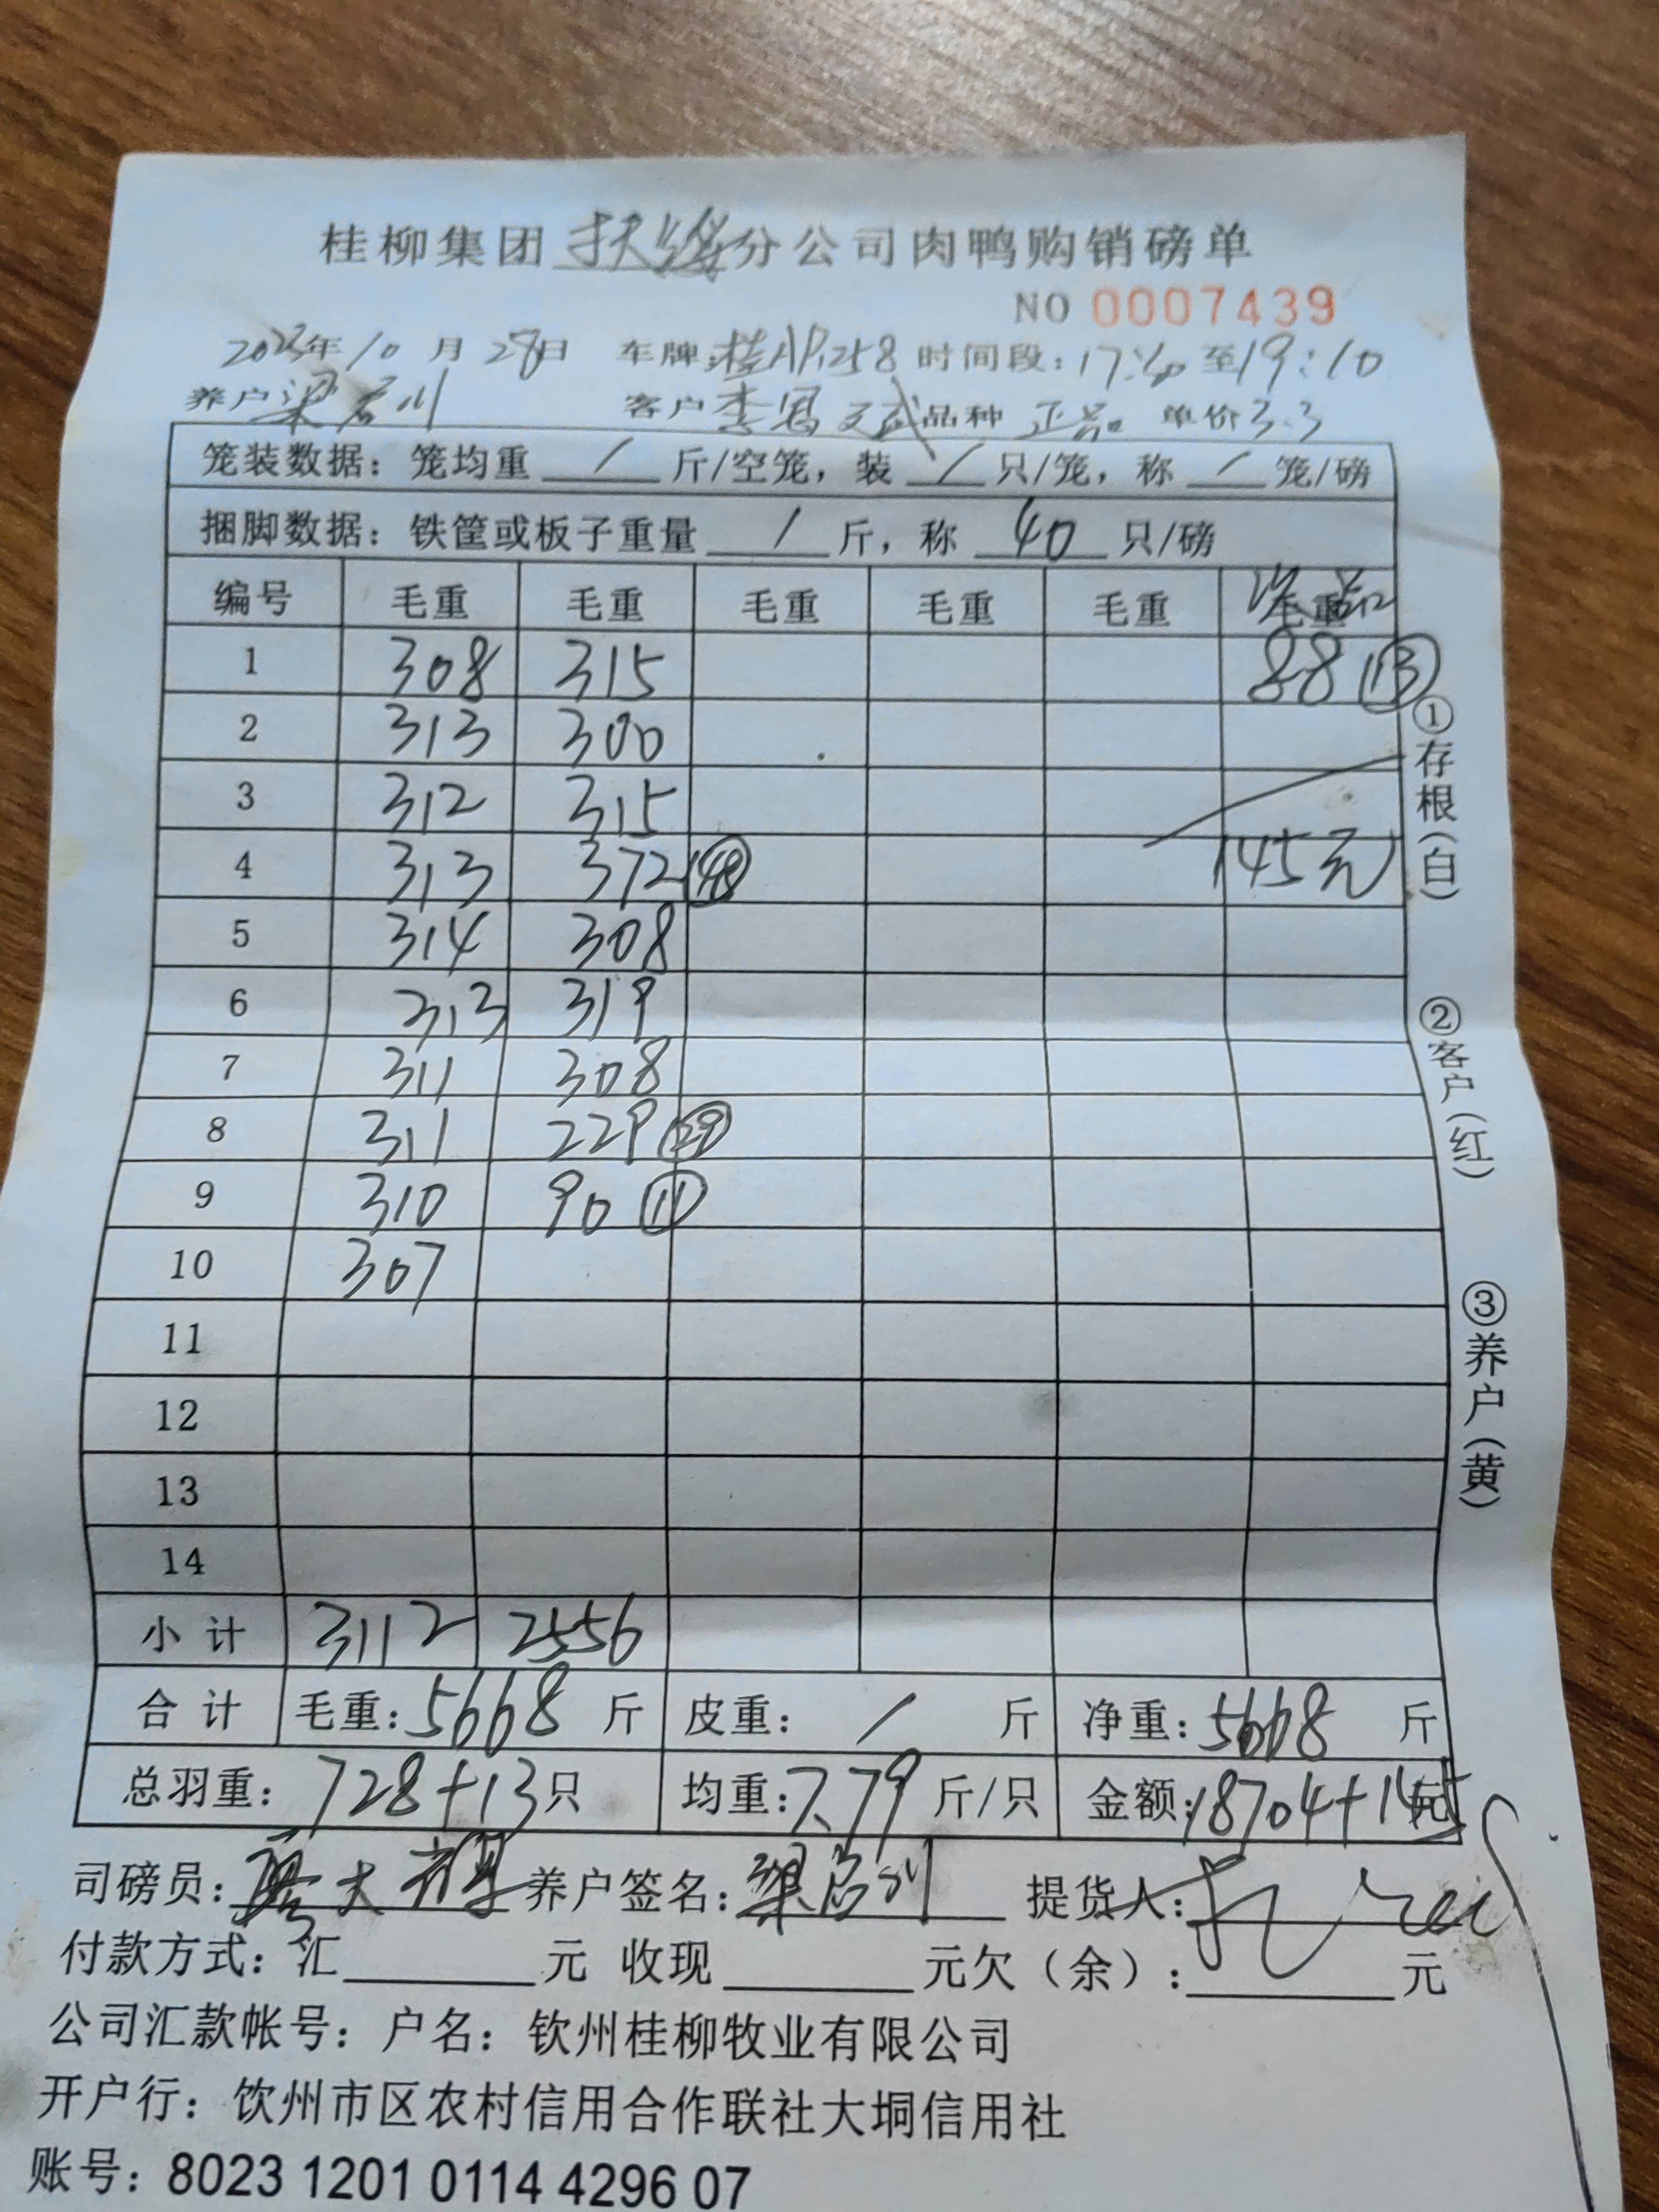 桂柳集团扶绥分公司肉鸭购销磅单
NO 0007439
2023年10月28日 车牌:桂AP1258 时间段:17:40至19:10
养户梁 川 客户李 品种 正品 单价3.3
笼装数据:笼均重 / 斤/空笼,装 / 只/笼,称 / 笼/磅
捆脚数据:铁筐或板子重量 / 斤,称 40 只/磅
编号 毛重 毛重 毛重 毛重 毛重 毛重
1 308 315 88 (13)
2 313 300
3 312 315
4 313 372 (48) 145元
5 314 308
6 313 319
7 311 308
8 311 229 (29)
9 310 90 (11)
10 307
11
12
13
14
小计 3112 2556
合计 毛重:5668 斤 皮重: / 斤 净重:5668 斤
总羽重:728+13只 均重:7.79 斤/只 金额:18704+145元
司磅员: 大 养户签名:梁 川 提货人:
付款方式:汇 元 收现 元欠(余): 元
公司汇款帐号:户名:钦州桂柳牧业有限公司
开户行:饮州市区农村信用合作联社大垌信用社
账号:8023 1201 0114 4296 07
①存根(白)
②客户(红)
③养户(黄)